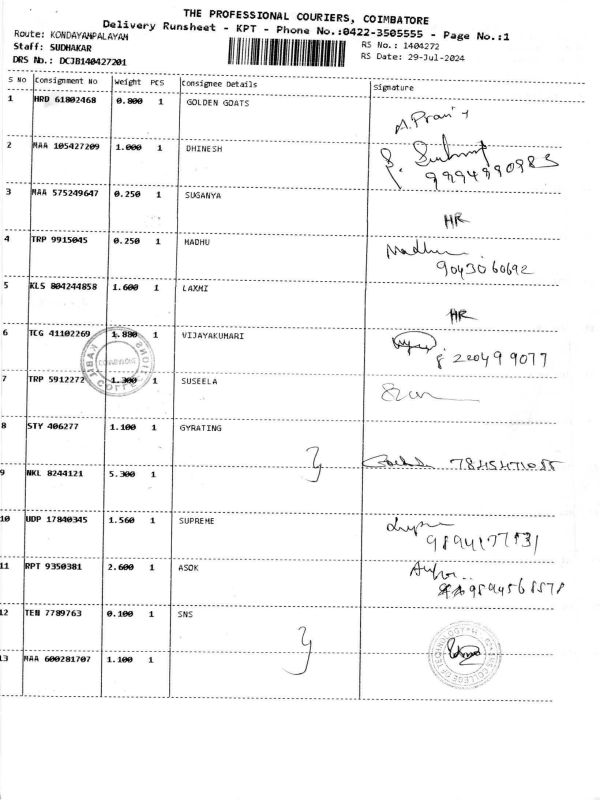 THE PROFESSIONAL COURIERS, COIMBATORE
Delivery Runsheet - KPT - Phone No.:0422-3505555 - Page No.:1
Route: KONDAYAMPALAYAM
RS No.: 1404272
Staff: SUDHAKAR
RS Date: 29-Jul-2024
DRS No.: DCJB140427201
S No Consignment No Weight PCS Consignee Details Signature
1 HRD 61802468 0.800 1 GOLDEN GOATS
2 MAA 105427209 1.000 1 DHINESH
9894890983
3 MAA 575249647 0.250 1 SUGANYA
HR
4 TRP 9915045 0.250 1 MADHU Madhu
9043060692
5 KLS 804244858 1.600 1 LAXMI
HR
6 TCG 41102269 1.880 1 VIJAYAKUMARI
8220499077
7 TRP 5912272 1.300 1 SUSEELA
8 STY 406277 1.100 1 GYRATING
9 NKL 8244121 5.300 1
10 UDP 17840345 1.560 1 SUPREME
11 RPT 9350381 2.600 1 ASOK
9894568578
12 TEN 7789763 0.100 1 SNS
13 MAA 600281707 1.100 1